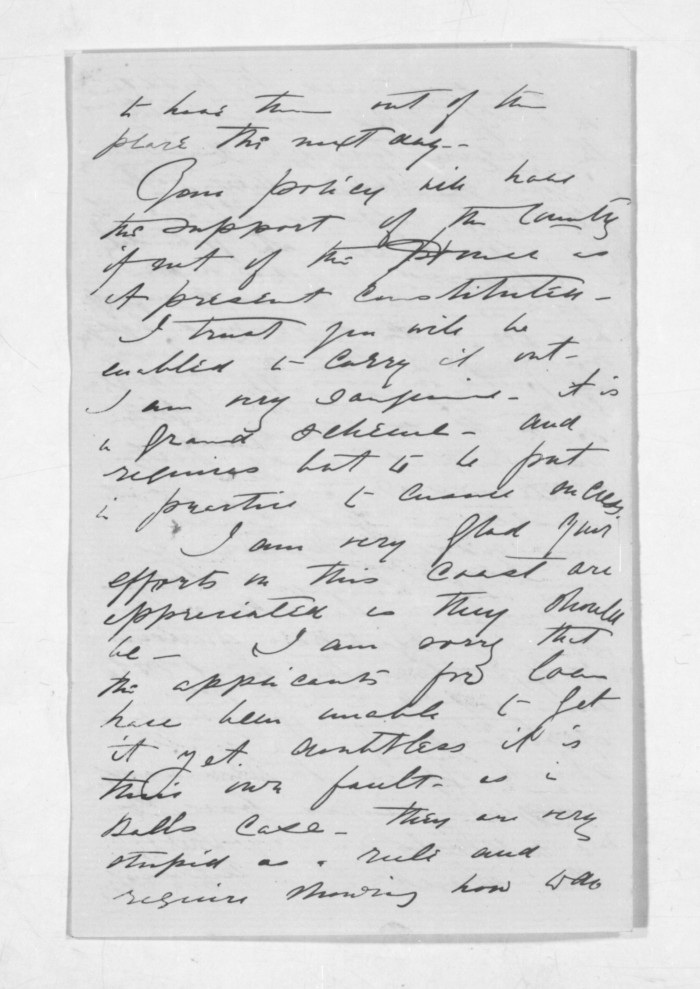 to have them out of the
place the next day--
Your policy will have
the support of the Country
if not of the House as
at present constituted -
I trust you will be
enabled to carry it out -
I am very sanguine - it is
a grand scheme - and
requires but to be put
in practice to ensure success
I am very glad your
efforts on this Coast are
appreciated as they should
be - I am sorry that
the applicants for loan
have been unable to get
it yet. doubtless it is
their own fault - as in
Balls Case - they are very
stupid as a rule and
require showing how to do